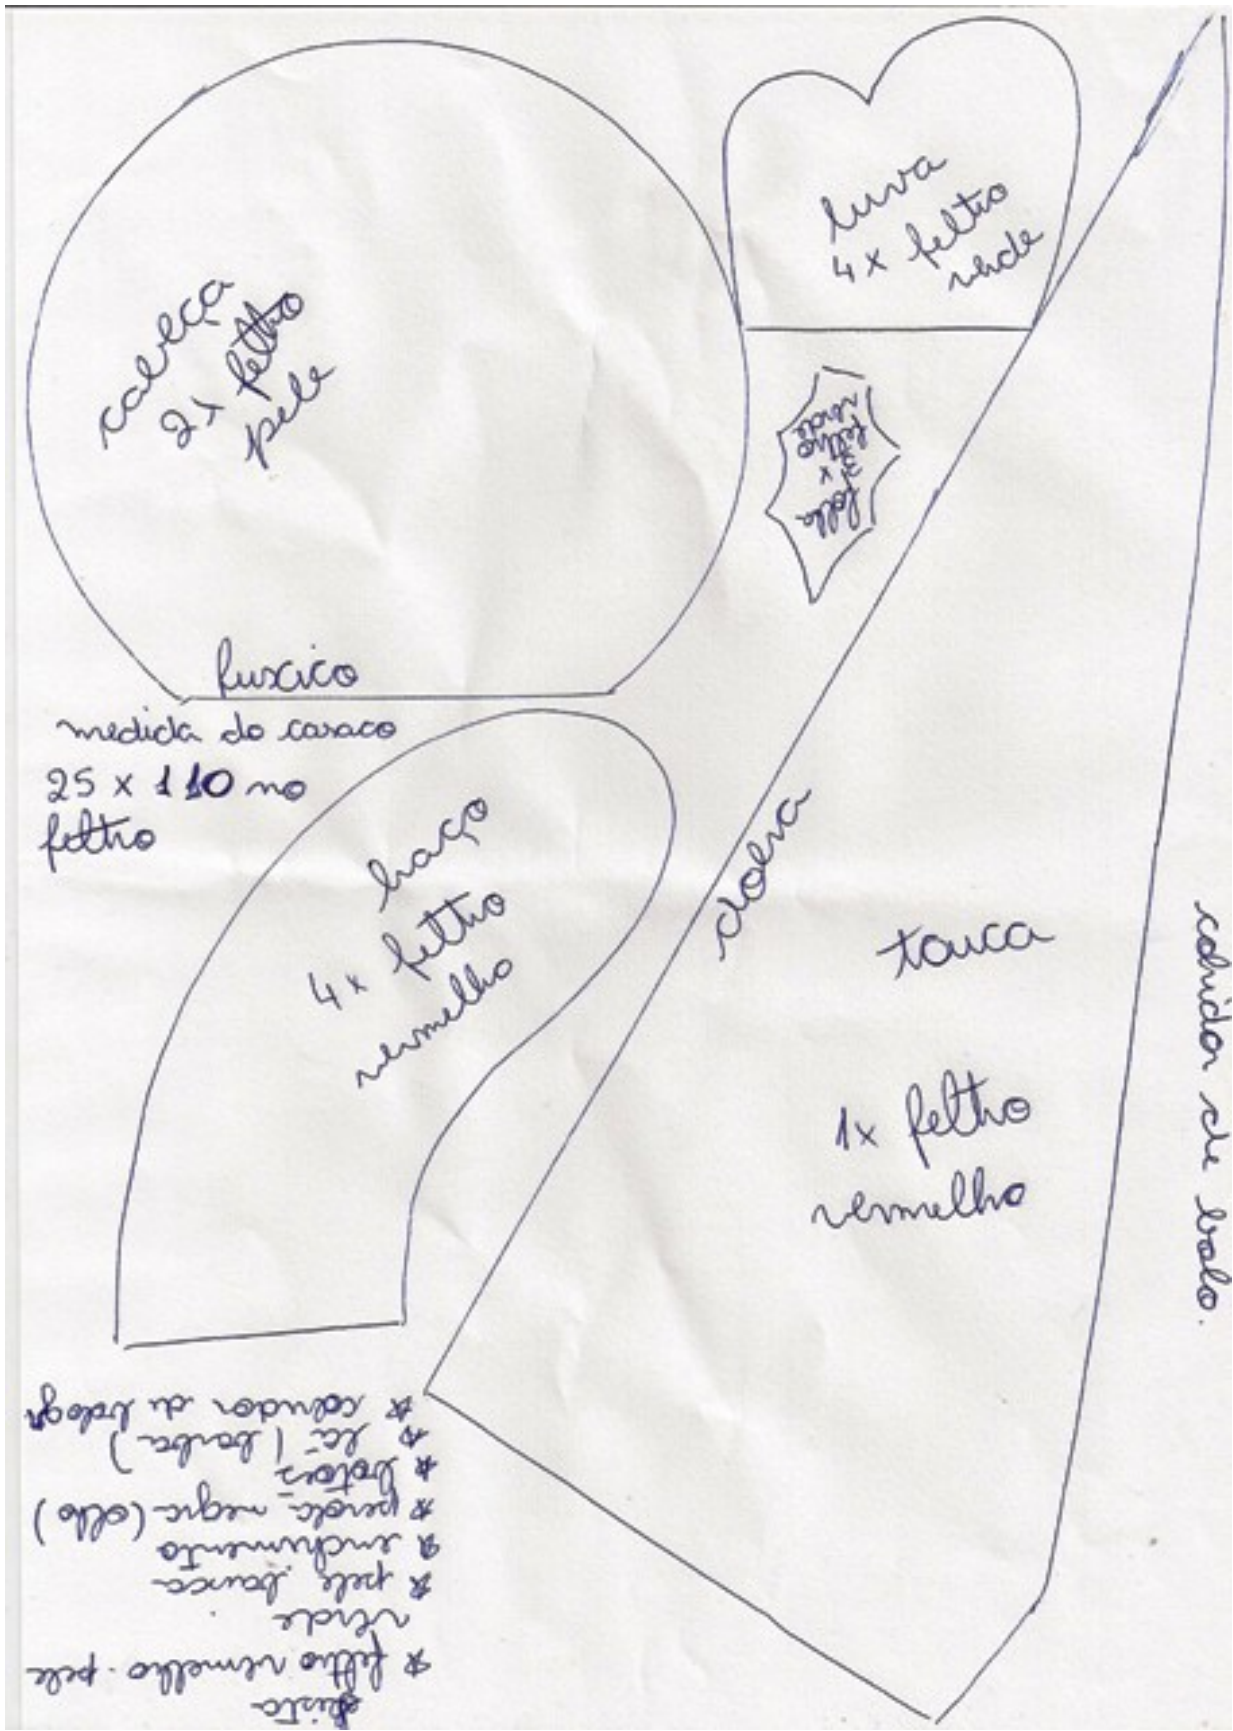 cabeça
2x feltro
pele
fuxico
luva
4x feltro
verde
folha
3x
feltro
verde
medida do casaco
25 x 110 no
feltro
braço
4x feltro
vermelho
dobra
touca
1x feltro
vermelho
cobidor de bolo.
Lista
* feltro vermelho. pele
verde
* pele branca
* enchimento
* perola negra (olho)
* botões
* lã (barba)